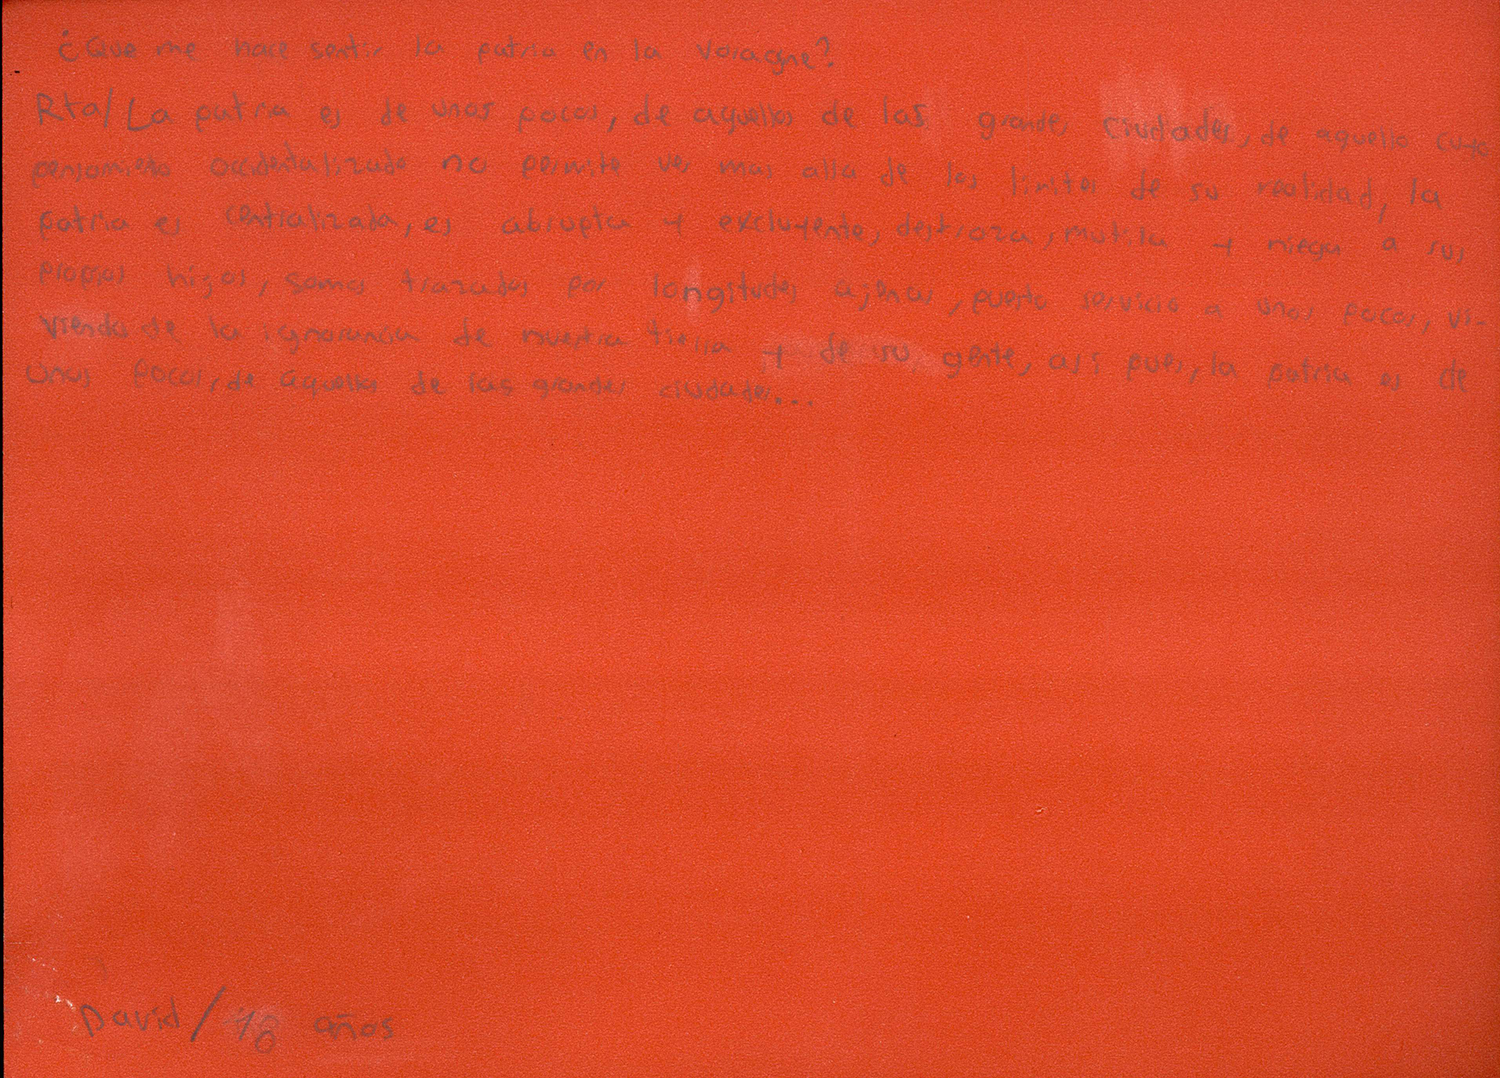 ¿Que me hace sentir la patria en la Voragne?
Rta/ La patria es de unos pocos, de aquellos de las grandes ciudades, de aquello cuyo
pensamiento occidentalizado no permite ver mas alla de los limites de su realidad, la
patria es centralizada, es abrupta y excluyente, destroza, mutila y niega a sus
propios hijos, somos trazados por longitudes ajenas, puerto servicio a unos pocos, vi-
viendo de la ignorancia de nuestra tierra y de su gente, así pues, la patria es de
unos pocos, de aquellos de las grandes ciudades...
David / 16 años